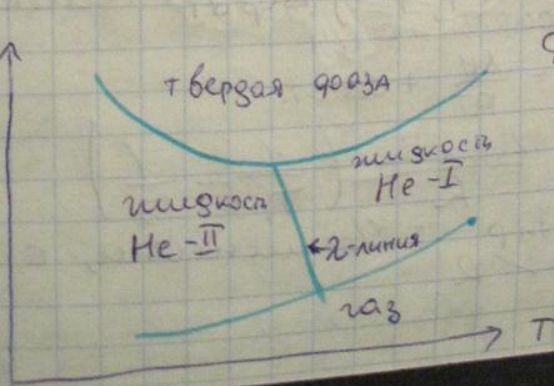 твердая фаза
жидкость
He-I
жидкость
He-II
λ-линия
газ
T